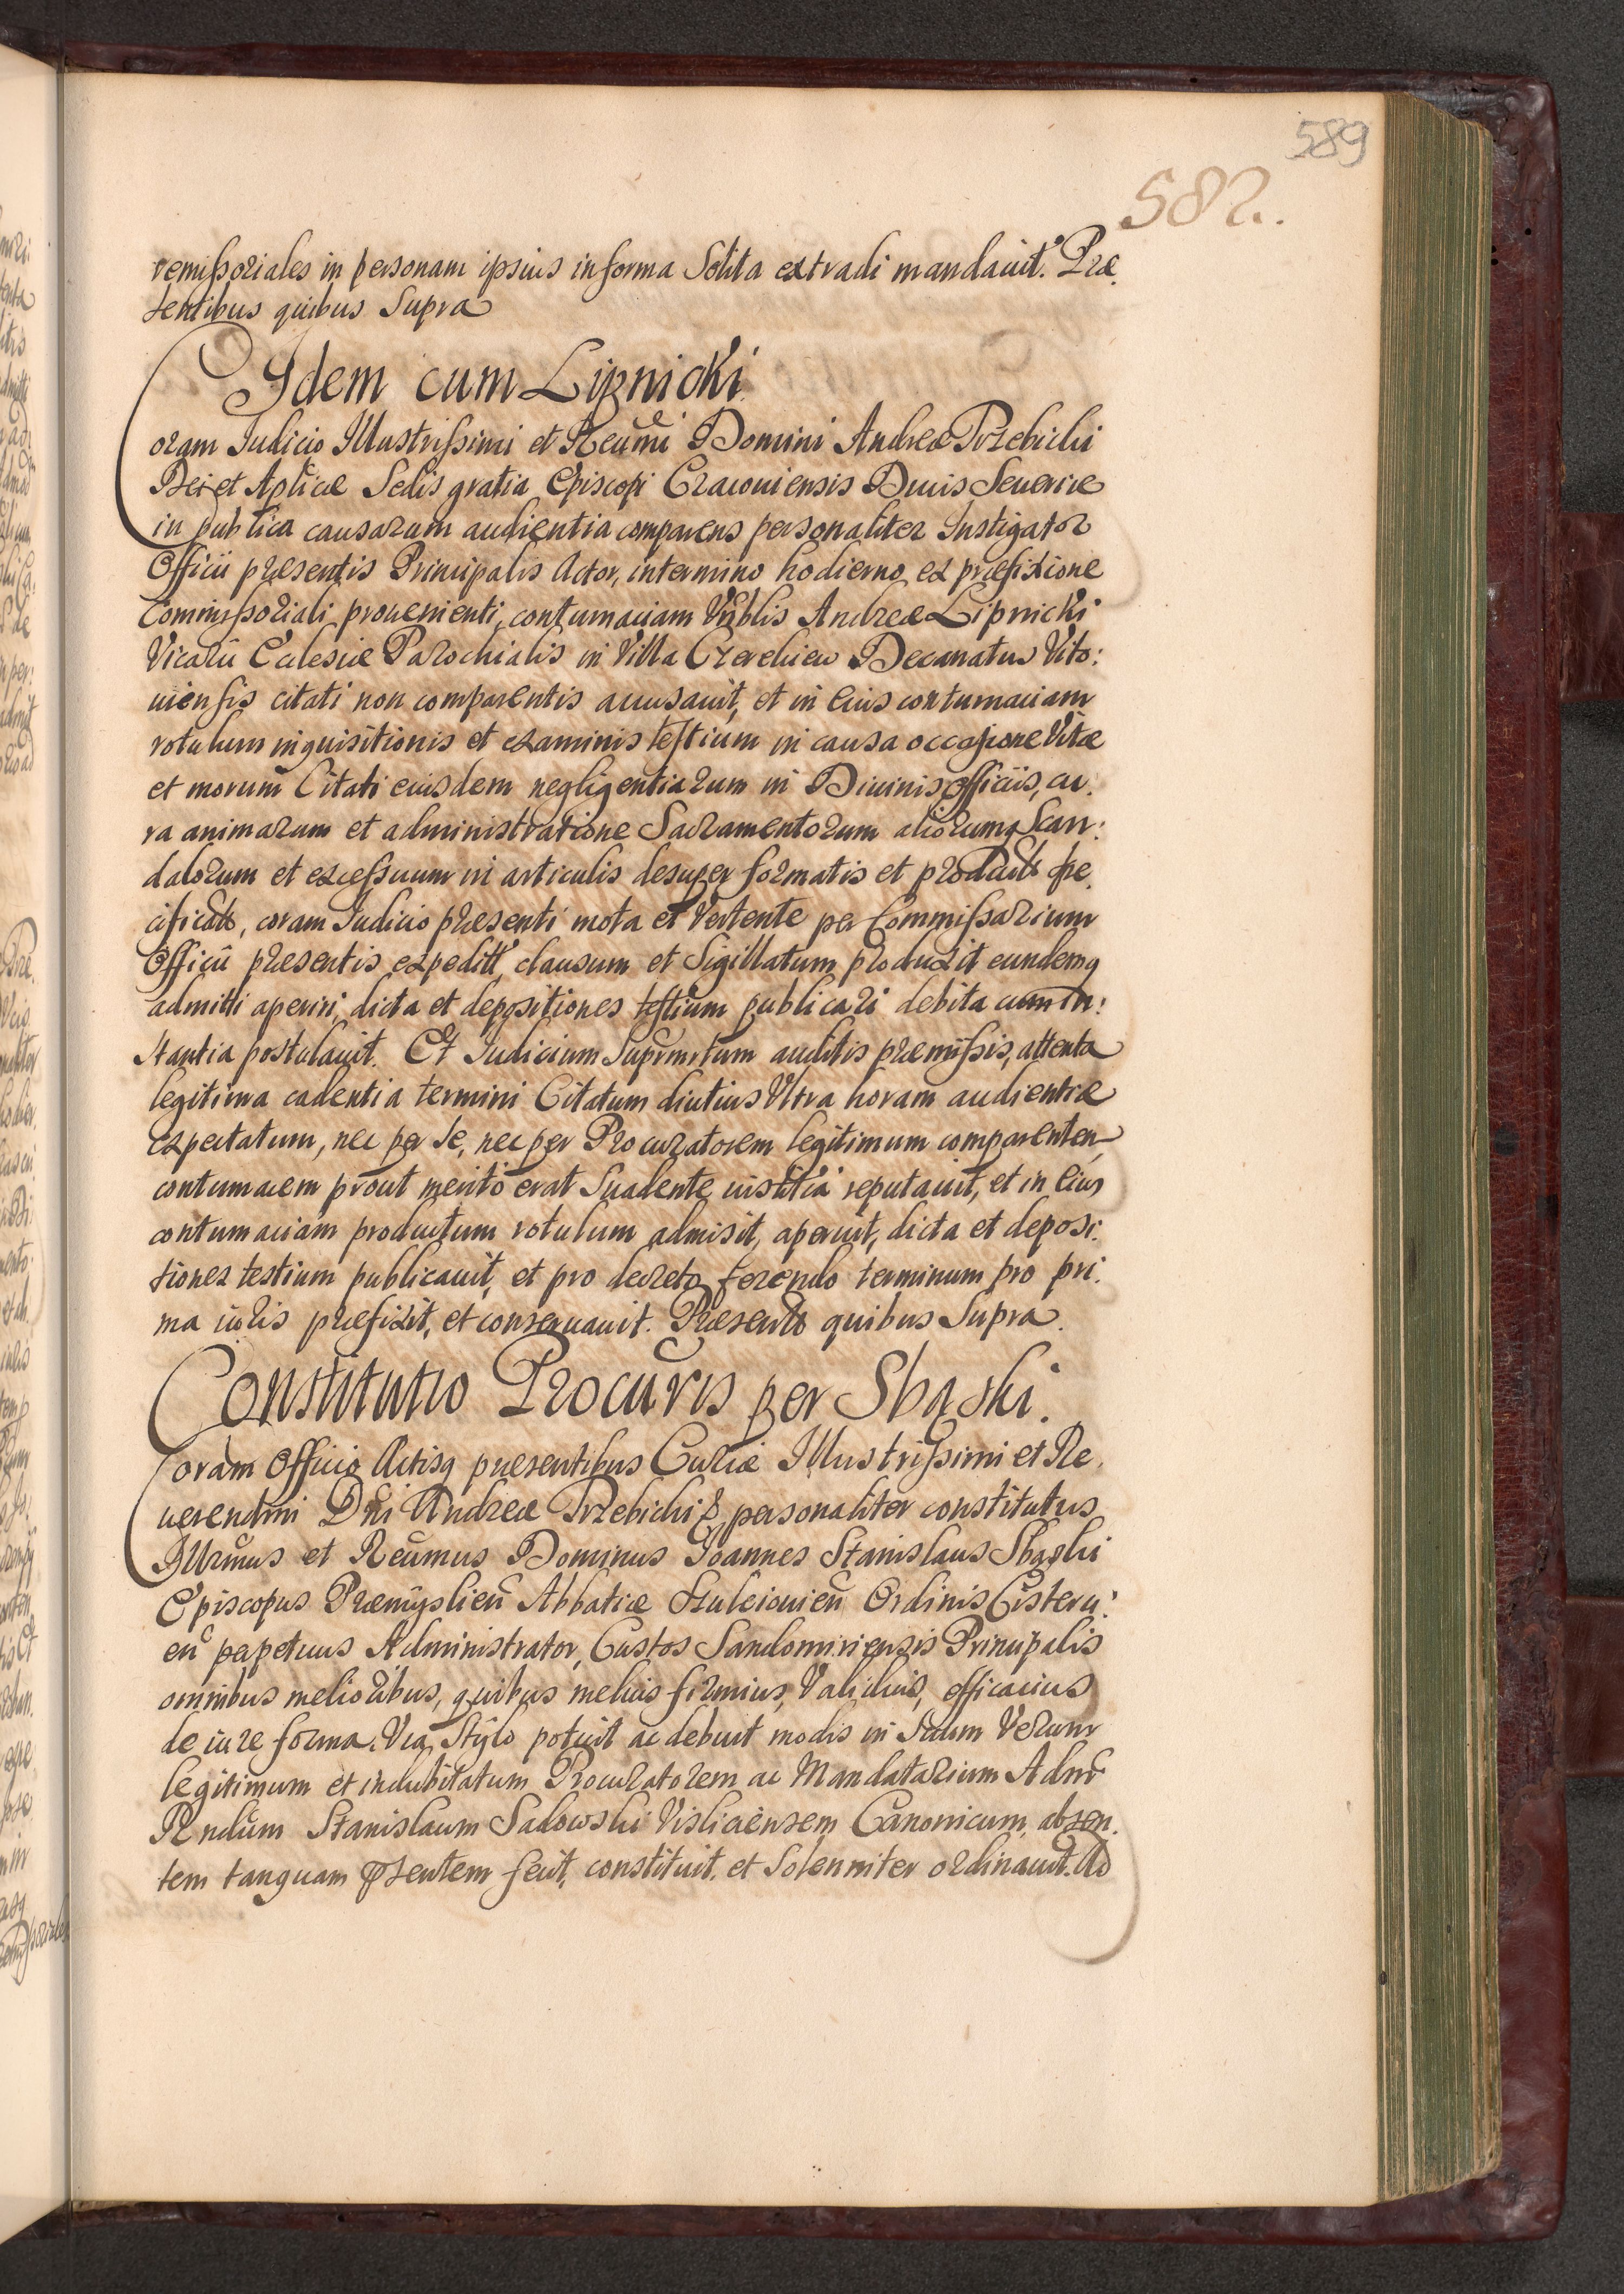 589
582.
remissoriales in personam ipsius in forma Solita extradi mandauit. Præ.
sentibus quibus Supra
Idem cum Lipnicki.
Coram Iudicio Illustrissimi et Reũmi Domini Andreæ Trzebicki
Dei et Aplicæ Sedis gratia Episcopi Cracouiensis Ducis Seueriæ
in publica causarum audientia comparens personaliter Instigator
Officii præsentis Principalis Actor, in termino hodierno ex præfixione
Commissoriali prouenienti, contumaciam Vñblis Andreæ Lipnicki
Vicarii Ecclesiæ Parochialis in Villa Decanatus Vito:
uiensis citati non comparentis accusauit, et in eius contumaciam
rotulum inquisitionis et examinis testium in causa occasione Vitæ
et morum Citati eiusdem negligentiarum in Diuinis officiis, cu.
ra animarum et administratione Sacramentorum aliorumq Scan:
dalorum et excessuum in articulis desuper formatis et productis spe.
cificatis, coram Iudicio præsenti mota et Vertente per Commissarium
Officii præsentis expeditt, clausum et Sigillatum produxit eundemq
admitti aperiri, dicta et depositiones testium publicari debita cum in:
stantia postulauit. Et Iudicium Suprmtum auditis præmissis, attenta
legitima cadentia termini Citatum diutius Vltra horam audientiæ
expectatum, nec per se, nec per Procuratorem legitimum comparentem
contumacem prout merito erat Suadente iustitia reputauit, et in eius
contumaciam productum rotulum admisit, aperuit, dicta et deposi:
tiones testium publicauit, et pro decreto ferendo terminum pro pri.
ma iuris præfixit, et conseruauit. Præsentibus quibus Supra.
Constitutio Procuris per Sbąski.
Coram Officio Actisq præsentibus Curiæ Illustrissimi et Re.
uerendmi Dñi Andreæ Trzebicki & personaliter constitutus
Illrmus et Reũmus Dominus Joannes Stanislaus Sbąski
Episcopus Præmyslieñ Abbatiæ Suleiouieñ Ordinis Cisterci:
eñ perpetuus Administrator, Custos Sandomiriensis Principalis
omnibus melioribus, quibus melius firmius, Validius, efficacius
de iure forma, Via, Stylo potuit ac debuit modis in Suum Verum
legitimum et indubitatum Procuratorem ac Mandatarium Admr
Rndum Stanislaum Sadowski Visliciensem Canonicum absen.
tem tanquam præsentem fecit, constituit, et Solenniter ordinauit. Ad